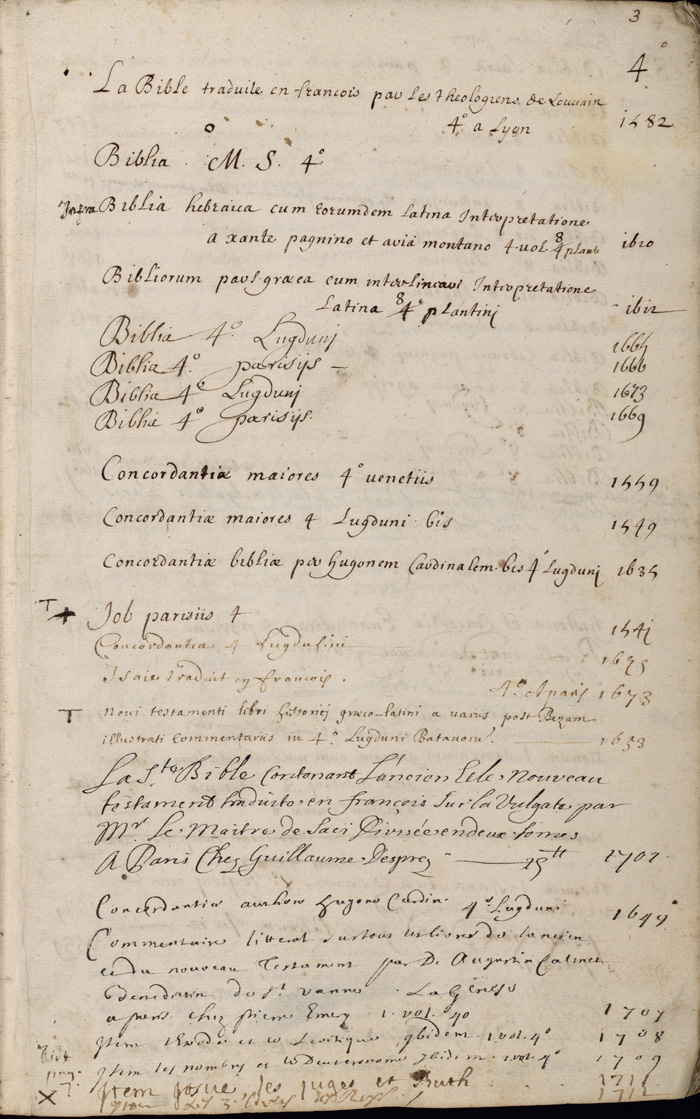 3
4°
La Bible traduite en francois par les theologiens de Louvain
4° a Lyon 1582
Biblia M. S. 4°
Infra Biblia hebraica cum eorumdem latina Interpretatione
a xante pagnino et aria montano 4 vol. 8 4 planti 1610
Bibliorum pars græca cum interlineari Interpretatione
Latina 8 4° plantinj 1612
Biblia 4° Lugdunj 1665
Biblia 4° parisijs 1666
Biblia 4° Lugdunj 1673
Biblia 4° parisijs 1669
Concordantiæ maiores 4° venetiis 1559
Concordantiæ maiores 4 Lugduni bis 1549
Concordantiæ bibliæ per hugonem Cardinalem bis 4° Lugdunj 1635
T Job parisiis 4 1541
Concordantia 4 Lugduni
Isaie traduit en francois. 4° A paris 1673
T novi testamenti libri historicj græco-latini a variis post Bezam
illustrati commentariis in 4° Lugduni Batavoru. 1653
La Ste Bible Contenant L'ancien et le Nouveau
testament traduite en françois sur la Vulgate par
Mr. Le Maitre de Saci Divisée en deux tomes
A Paris Chez Guillaume Desprez 1702
Concordantiæ authore hugone Cardin. 4° Lugduni 1649
Commentaire litteral sur tous les livres de lancien
et du nouveau Testament par D. Augustin Calmet
Benedictin de St vanne. La Genese
a paris chez pierre Emery 1. vol. 4° 1707
Item Exode et le Levitique ibidem 1 vol. 4° 1708
Item les nombres et le Deuteronome ibidem 1 vol. 4° 1709
X Item Josue les juges et Ruth 1711